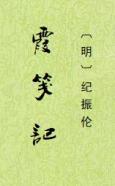 〔明〕纪振伦
霞笺記